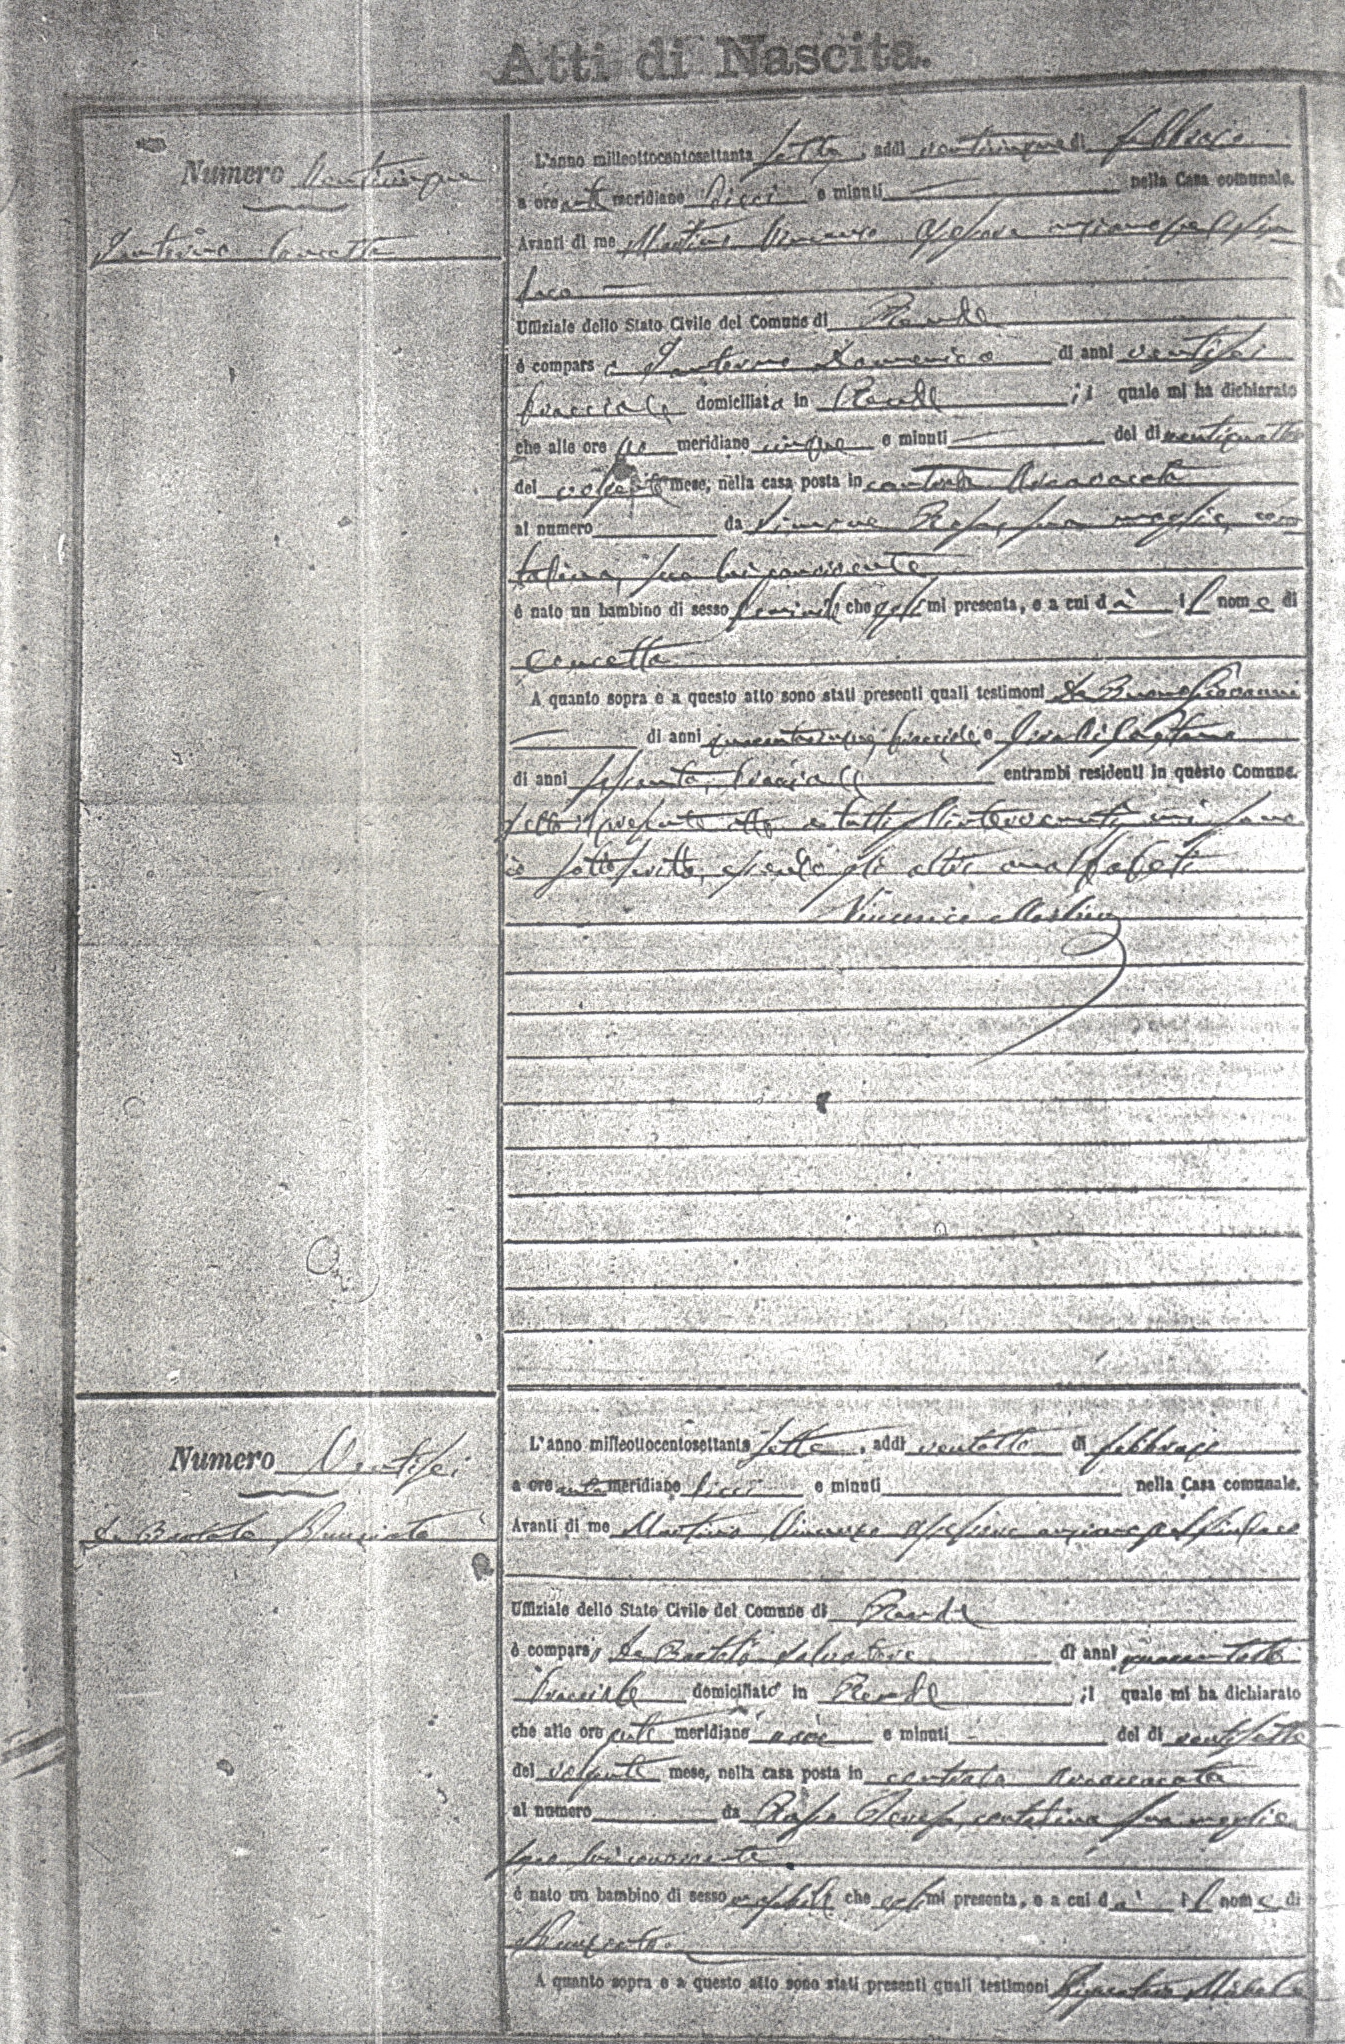 Atti di Nascita.
Numero Venticinque
Concetta
L'anno milleottocentosettanta sette, addì venticinque di febbraio
a ore ante meridiane dieci e minuti nella Casa comunale.
Avanti di me Martino Vincenzo Assessore anziano pel Sin
daco
Uffiziale dello Stato Civile del Comune di Rende
è comparso Domenico di anni ventisei
bracciale domiciliato in Rende ; il quale mi ha dichiarato
che alle ore po meridiane cinque e minuti del dì ventiquattro
del volgente mese, nella casa posta in contrada Arcavacata
al numero da Rosa, sua moglie, con
tadina, seco lui convivente
è nato un bambino di sesso feminile che egli mi presenta, e a cui dà il nome di
Concetta
A quanto sopra e a questo atto sono stati presenti quali testimoni De Buono Giovanni
di anni quarantacinque, bracciale e Gaetano
di anni sessanta, bracciale entrambi residenti in questo Comune.
Letto il presente atto a tutti gl'intervenuti, mi sono
io sottoscritto, essendo gli altri analfabeti
Vincenzo Martino
Numero Ventisei
De Bartolo Nunziato
L'anno milleottocentosettanta sette, addì ventotto di febbraio
a ore ante meridiane dieci e minuti nella Casa comunale.
Avanti di me Martino Vincenzo Assessore anziano pel Sindaco
Uffiziale dello Stato Civile del Comune di Rende
è comparso De Bartolo Salvatore di anni quarantotto
bracciale domiciliato in Rende ; il quale mi ha dichiarato
che alle ore ante meridiane nove e minuti del dì ventisette
del volgente mese, nella casa posta in contrada Arcavacata
al numero da Teresa, contadina sua moglie
seco lui convivente
è nato un bambino di sesso maschile che egli mi presenta, e a cui dà il nome di
Nunziato
A quanto sopra e a questo atto sono stati presenti quali testimoni Michele